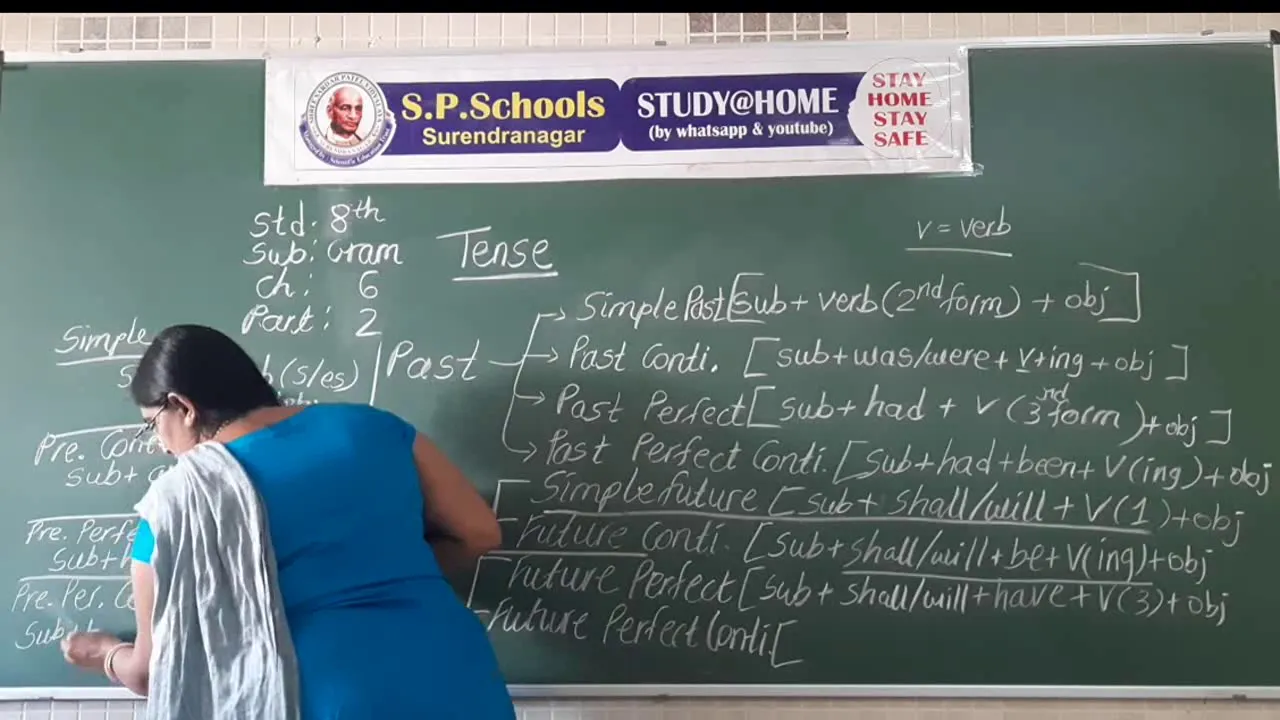 S.P.Schools
Surendranagar
STUDY@HOME
(by whatsapp & youtube)
STAY
HOME
STAY
SAFE
Std: 8th
Sub: Gram
Ch: 6
Part: 2
Tense
v = verb
Simple
(s/es)
Pre. Conti
Sub+
Pre. Perfe
Sub+h
Pre. Per. Co
Sub+h
Past
Simple Past [sub + verb (2nd form) + obj]
Past Conti. [sub+was/were+v+ing+obj]
Past Perfect [sub+had + v (3nd form)+obj]
Past Perfect Conti. [sub+had+been+V(ing)+obj
Simple future [sub+ shall/will + V(1)+obj
Future Conti. [sub+shall/will+be+V(ing)+obj
Future Perfect [sub+ shall/will+have+V(3)+obj
Future Perfect Conti.[